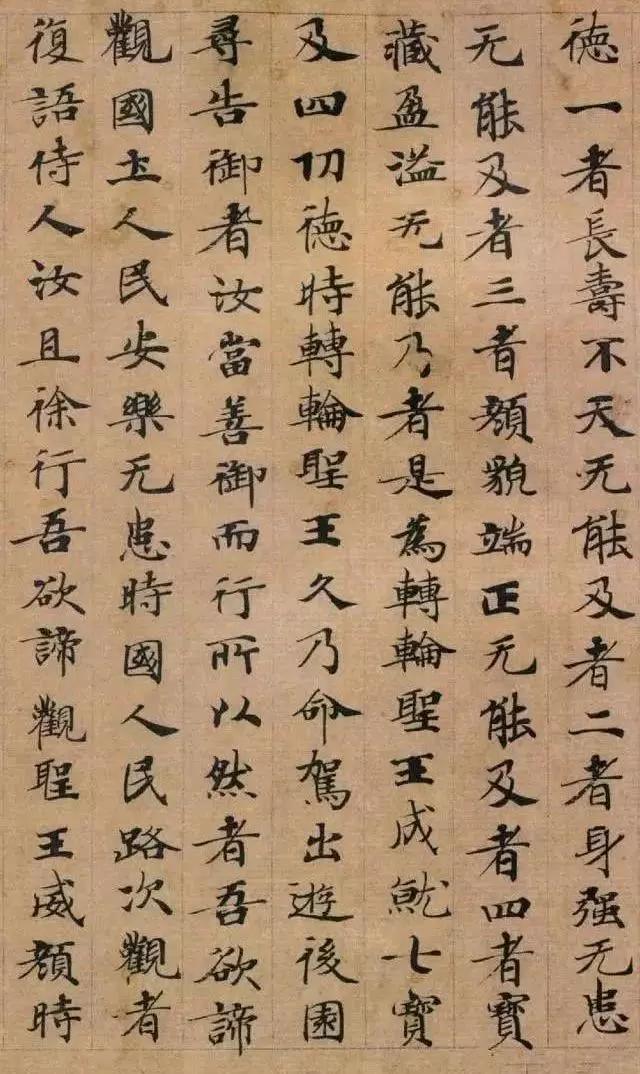 德一者長壽不夭无能及者二者身强无患
无能及者三者顔貌端正无能及者四者寳
藏盈溢无能乃者是為轉輪聖王成就七寳
及四功德時轉輪聖王久乃命駕出遊後園
尋告御者汝當善御而行所以然者吾欲諦
觀國土人民安樂无患時國人民路次觀者
復語侍人汝且徐行吾欲諦觀聖王威顔時